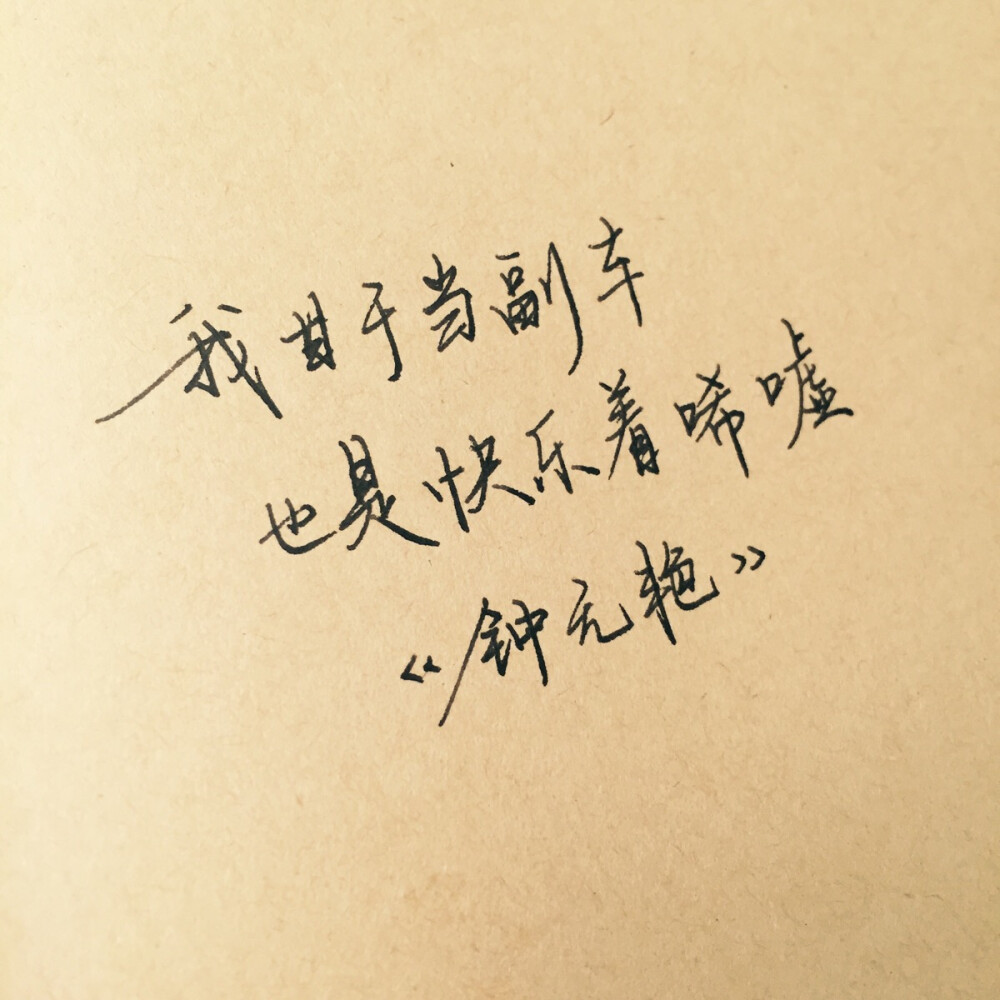 我甘于当副车
也是快乐着唏嘘
《钟无艳》